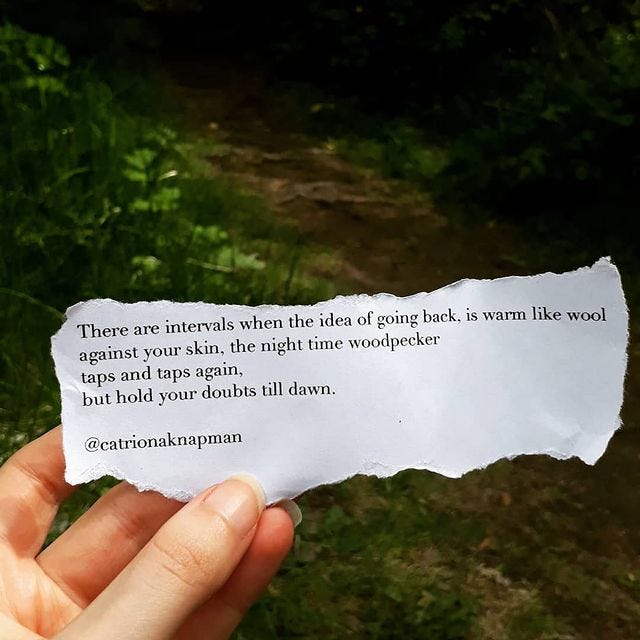 There are intervals when the idea of going back, is warm like wool
against your skin, the night time woodpecker
taps and taps again,
but hold your doubts till dawn.
@catrionaknapman